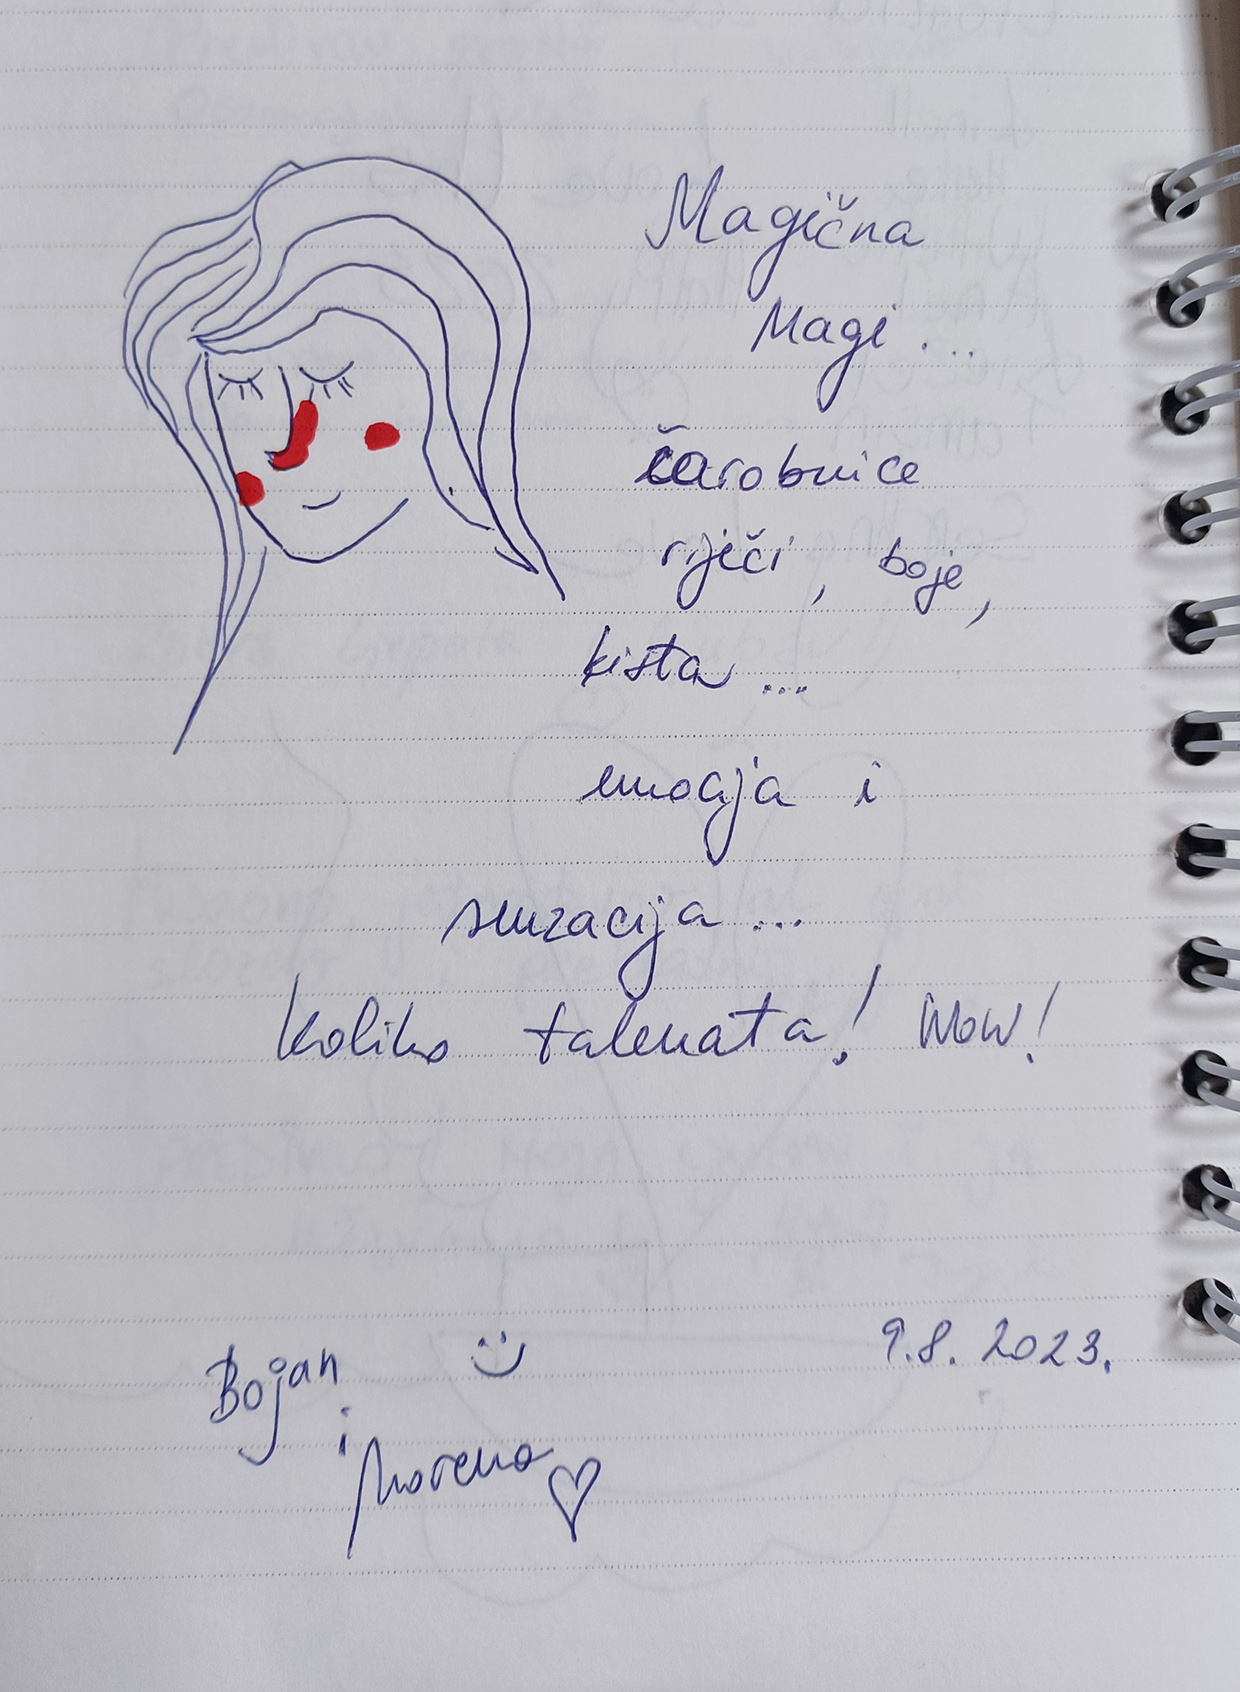 Magična
Magi...
čarobnice
riječi, boje,
kista...
emocija i
senzacija...
Koliko talenata! Wow!
9.8.2023.
Bojan
i
Morena